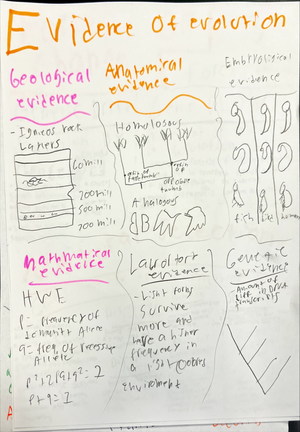 Evidence of evolution
Geological
evidence
- Igneous rock
Layers
60 mill
200 mill
500 mill
700 mill
Anatomical
evidence
Homologous
origin of
Analogous
Embryological
evidence
fish
human
Mathmatical
evidence
HWE
P = frequency of
Allele
q = freq. of recessive
Allele
p²+2pq+q² = 1
p+q = 1
Laboratory
evidence
- Light forms
survive
more and
have a higher
frequency in
a light colored
enviroment
Genetic
evidence
Amount of
diff in